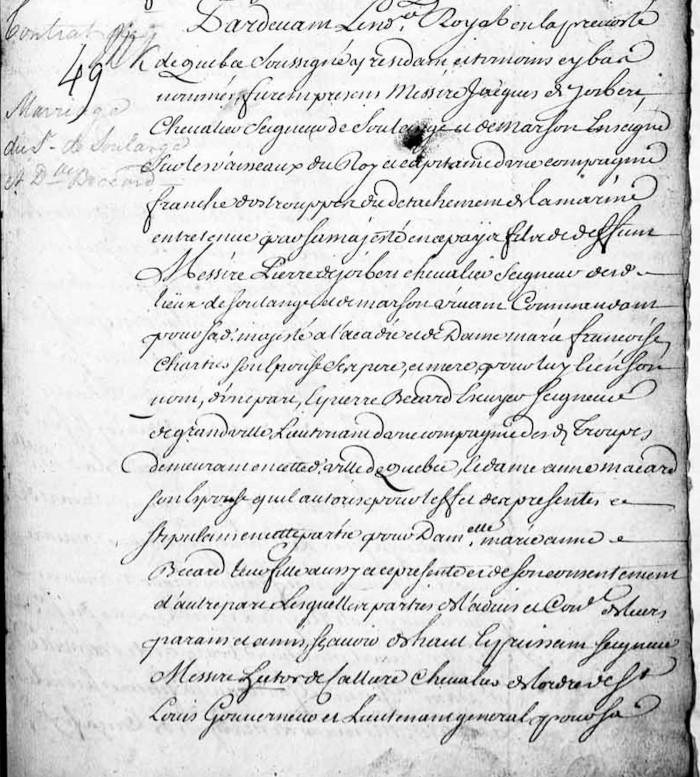 Contrat
49
Mariage
du Sr. de Soulange
et Dlle Becard
Pardevant Le nore. Royal en la prevosté
de quebec soussigné y residant et temoins cy bas
nommés furent presens Messire Jacques de Joibert
Chevalier Seigneur de Soulange et de marson Enseigne
sur les vaisseaux du Roy et capitaine dune compagnie
franche des trouppes du detachement de la marine
entretenue par sa majesté en ce pays fils de deffunt
Messire Pierre de Joibert chevalier Seigneur desd.
lieux de soulange et de marson vivant Commandant
pour sad. majesté a l'acadie et de Dame marie francoise
Chartier son Epouse ses pere et mere, pour luy et en son
nom, d'une part, Et pierre Becard Escuyer Seigneur
de grandville, Lieutenant dune compagnie desd. Troupes
demeurant en cette d. ville de Quebec, et dame anne macard
son Epouse quil autorise pour l'effet des presentes
stipulant en cette partie pour Damelle. marie anne
Becard leur fille aussy a ce presente et de son consentement
d'autre part Lesquelles parties de l'advis et Cont. de leurs
parans et amis, scavoir de haut Et puissant Seigneur
Messire hector de Calliere Chevalier de lordre de St
Louis Gouverneur et Lieutenant general pour sa